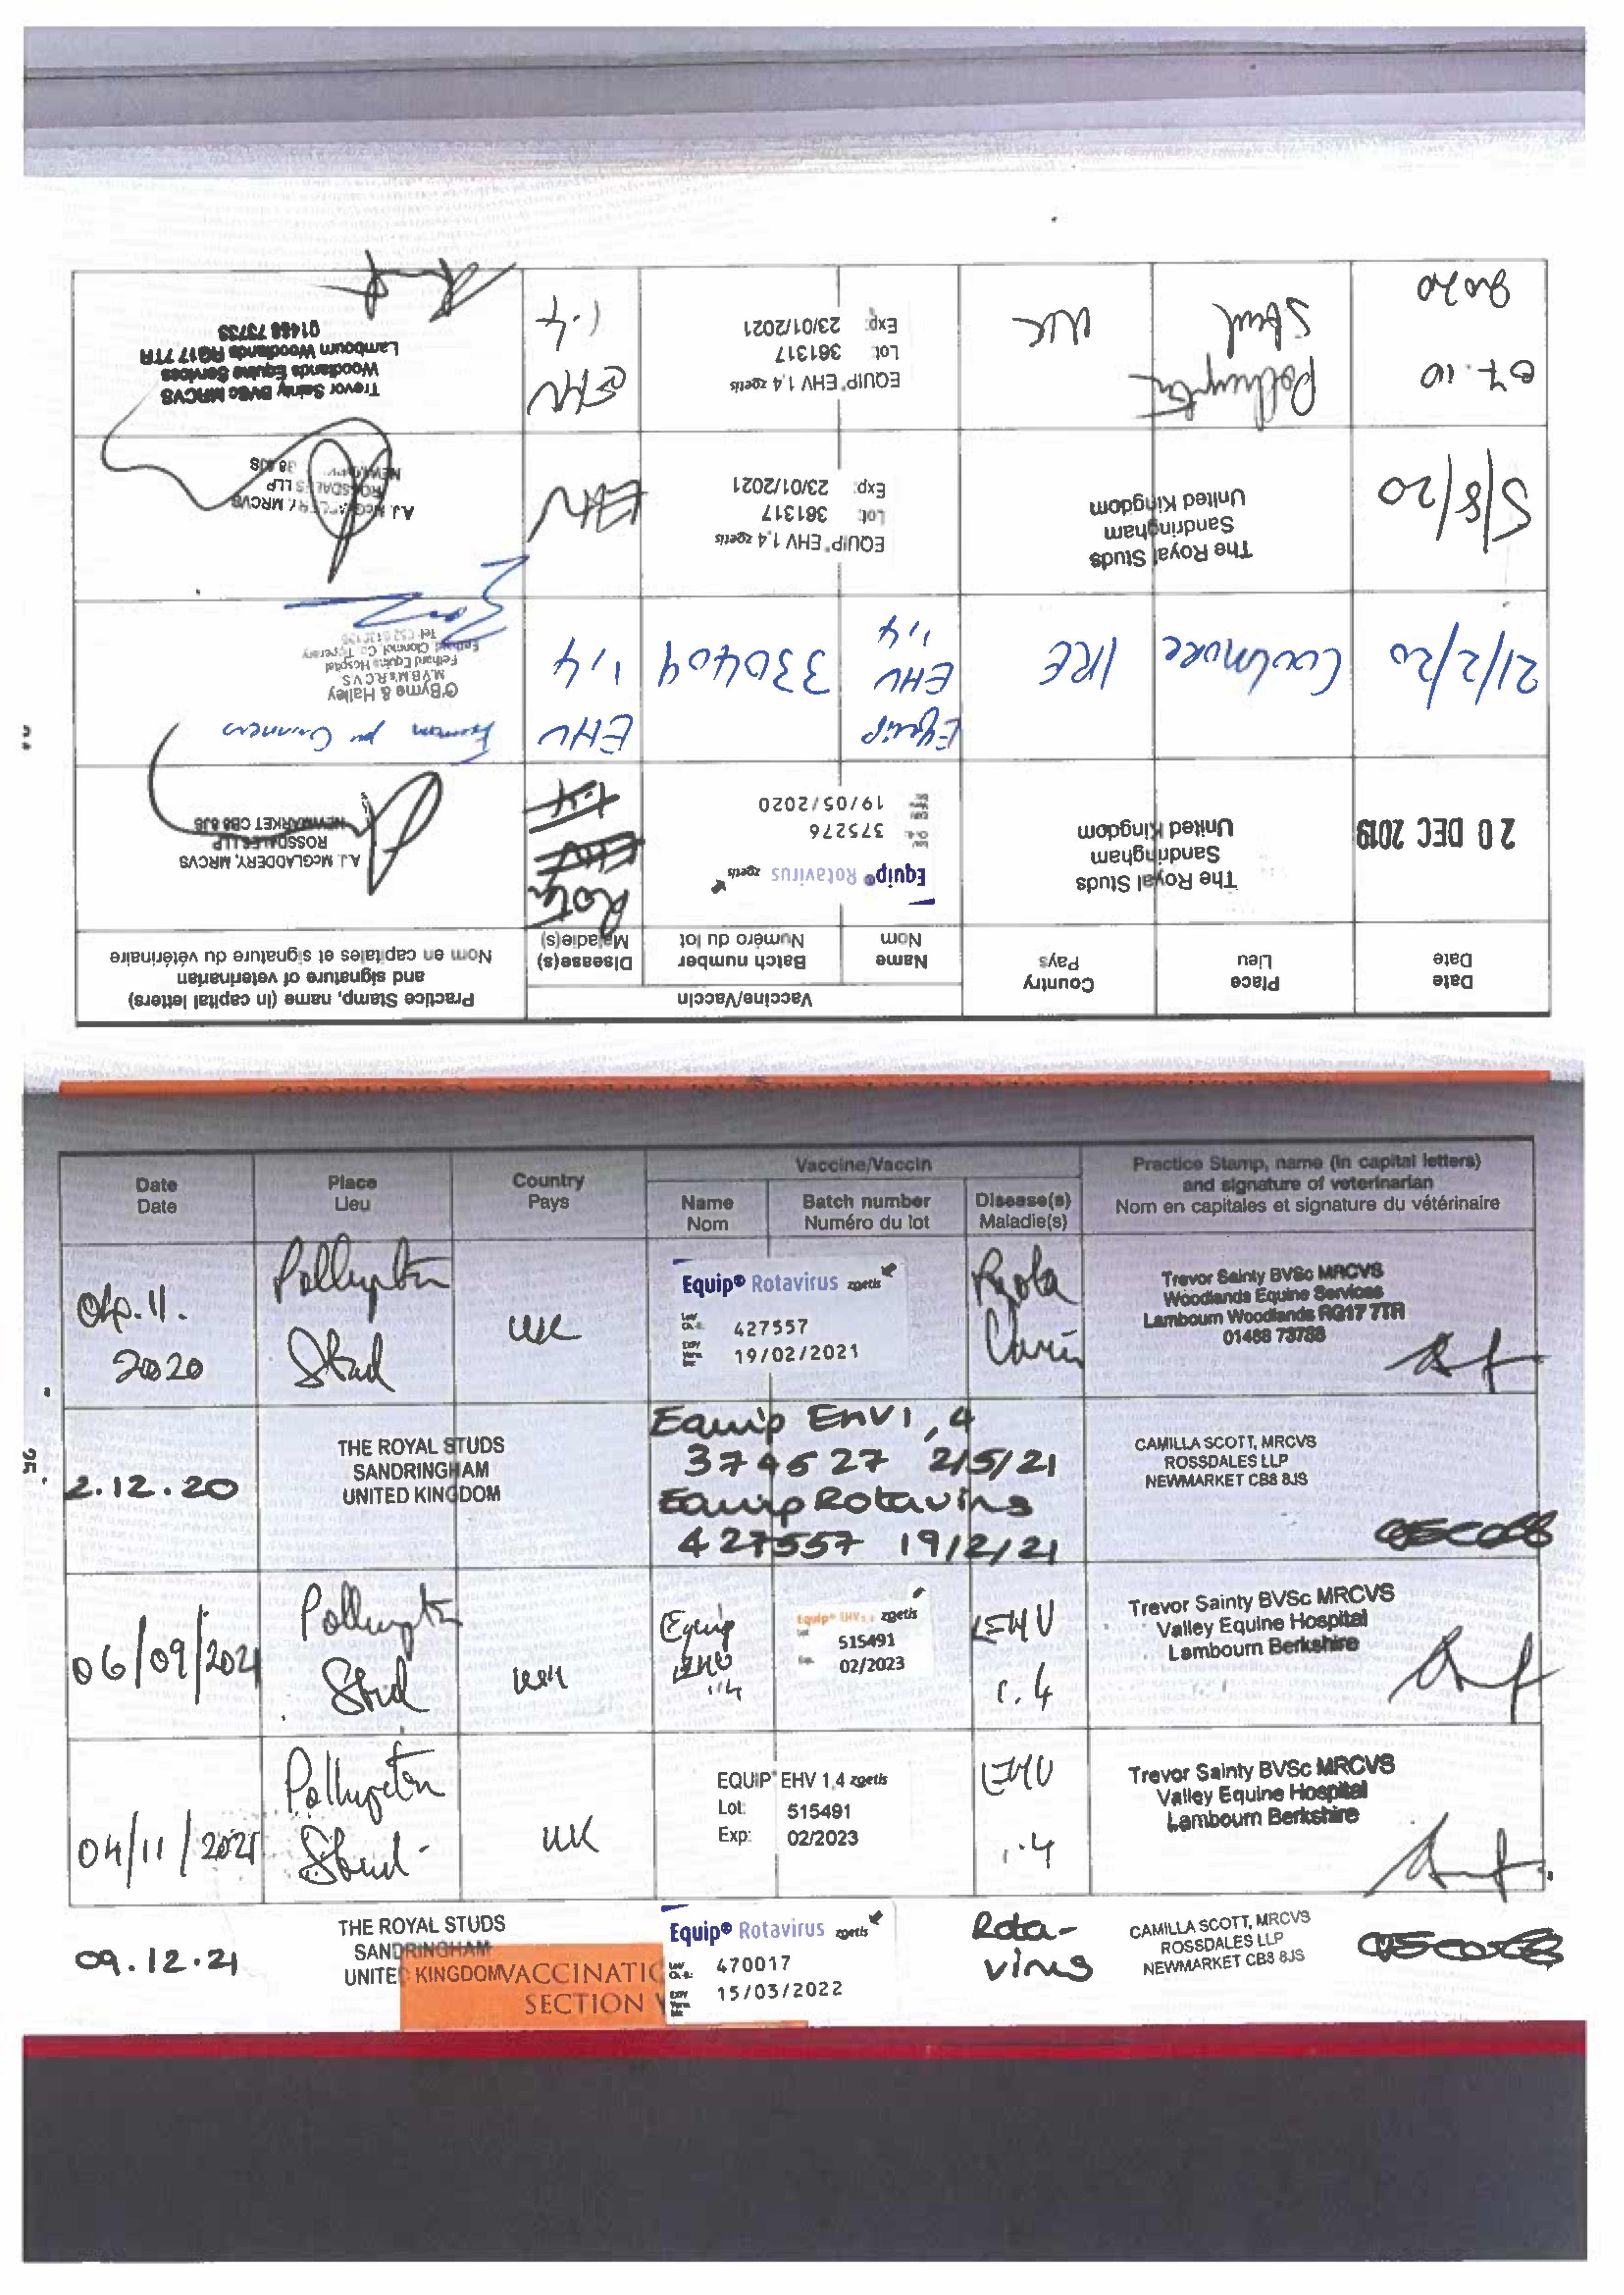 Practice Stamp, name (in capital letters)
and signature of veterinarian
Nom en capitales et signature du vétérinaire
Vaccine/Vaccin
Disease(s)
Maladie(s)
Batch number
Numéro du lot
Name
Nom
Country
Pays
Place
Lieu
Date
Date
20 DEC 2019
The Royal Studs
Sandringham
United Kingdom
Equip® Rotavirus zoetis
375276
19/05/2020
Rota
EHV
1.4
A.J. McGLADDERY, MRCVS
ROSSDALES LLP
NEWMARKET CB8 8JS
21/2/20
Coolmore
IRE
Equip
EHV
1,4
330404
EHV
1,4
O'Byrne & Halley
M.V.B. M.R.C.V.S.
Fethard Equine Hospital
Fethard, Clonmel, Co. Tipperary
5/8/20
The Royal Studs
Sandringham
United Kingdom
EQUIP® EHV 1,4 zoetis
Lot: 361317
Exp: 23/01/2021
EHV
ROSSDALES LLP
07.10
2020
Polhampton
Stud
UK
EQUIP® EHV 1,4 zoetis
Lot 361317
Exp: 23/01/2021
EHV
1.4
Trevor Sainty BVSc MRCVS
Woodlands Equine Services
Lambourn Woodlands RG17 7TR
01488 73739
Date
Date
Place
Lieu
Country
Pays
Vaccine/Vaccin
Name
Nom
Batch number
Numéro du lot
Disease(s)
Maladie(s)
Practice Stamp, name (in capital letters)
and signature of veterinarian
Nom en capitales et signature du vétérinaire
04.11.
2020
Polhampton
Stud
UK
Equip® Rotavirus zoetis
427557
19/02/2021
Rota
Virus
Trevor Sainty BVSc MRCVS
Woodlands Equine Services
Lambourn Woodlands RG17 7TR
25
2.12.20
THE ROYAL STUDS
SANDRINGHAM
UNITED KINGDOM
Equip EHV1,4
374527 2/5/21
Equip Rotavirus
427557 19/2/21
CAMILLA SCOTT, MRCVS
ROSSDALES LLP
NEWMARKET CB8 8JS
06/09/2021
Polhampton
Stud
UK
Equip
EHV
1,4
Equip® EHV 1,4 zoetis
515491
02/2023
EHV
1.4
Trevor Sainty BVSc MRCVS
Valley Equine Hospital
Lambourn Berkshire
04/11/2021
Polhampton
Stud
UK
EQUIP® EHV 1,4 zoetis
Lot: 515491
Exp: 02/2023
EHV
1.4
Trevor Sainty BVSc MRCVS
Valley Equine Hospital
Lambourn Berkshire
09.12.21
THE ROYAL STUDS
SANDRINGHAM
UNITED KINGDOM
VACCINATIO
SECTION V
Equip® Rotavirus zoetis
470017
15/03/2022
Rota-
virus
CAMILLA SCOTT, MRCVS
ROSSDALES LLP
NEWMARKET CB8 8JS